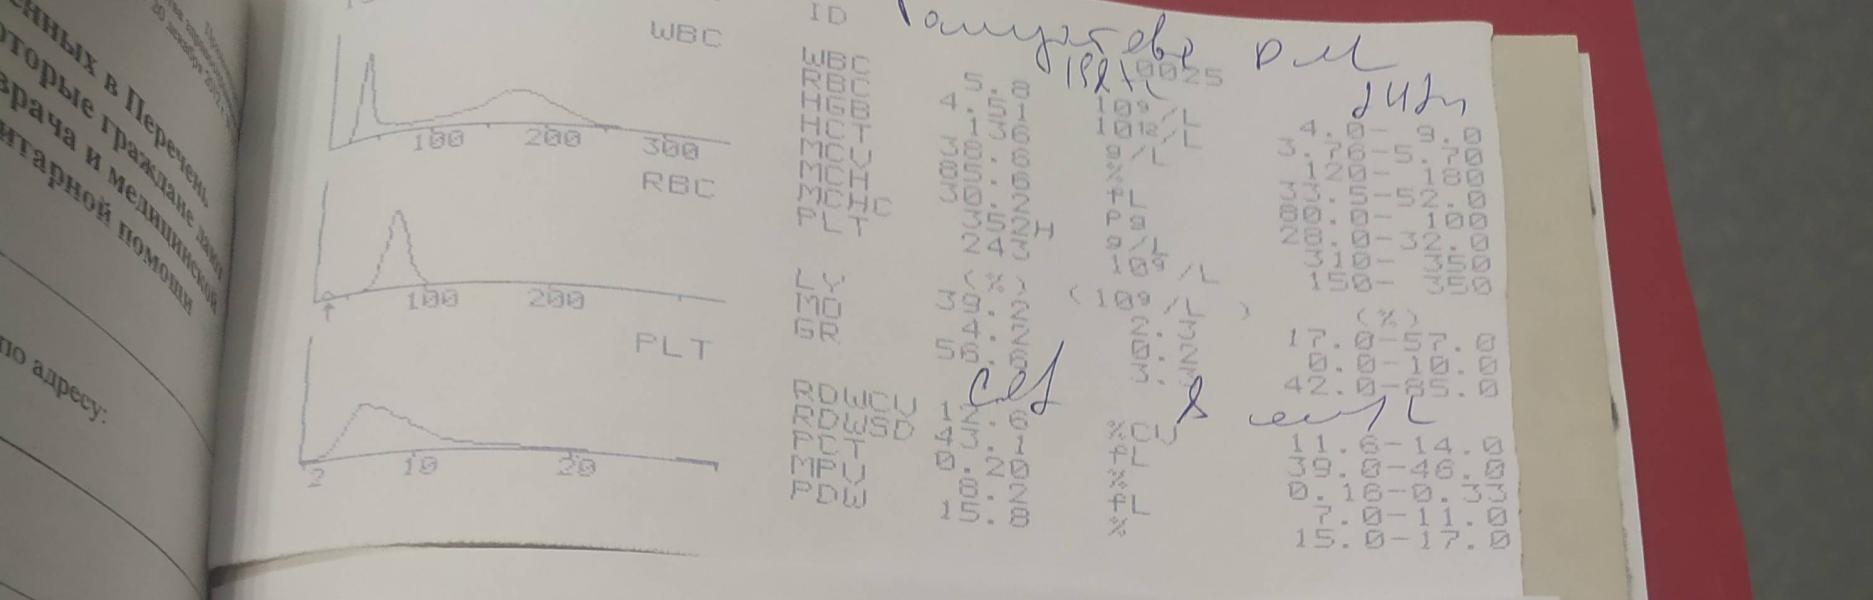 енных в Перечень
оторые граждане дают
врача и медицинской
нитарной помощи
по адресу:
WBC
100 200 300
RBC
100 200
PLT
10 20
ID 0025
WBC 5.8 10⁹/L 4.0- 9.0
RBC 4.51 10¹²/L 3.76-5.70
HGB 136 g/L 120- 180
HCT 38.6 % 33.5-52.0
MCV 85.6 fL 80.0- 100
MCH 30.2 Pg 28.0-32.0
MCHC 352 H g/L 310- 350
PLT 243 10⁹/L 150- 350
(%) (10⁹/L) (%)
LY 39.2 2.3 17.0-57.0
MO 4.2 0.2 0.0-10.0
GR 56.6 3.3 42.0-85.0
RDWCV 12.6 %CV 11.6-14.0
RDWSD 43.1 fL 39.0-46.0
PCT 0.20 % 0.16-0.33
MPV 8.2 fL 7.0-11.0
PDW 15.8 % 15.0-17.0